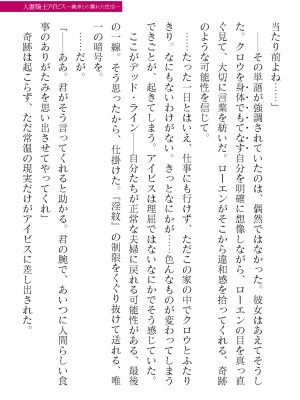 人妻騎士アイビス―義弟との爛れた性活―
当たり前よね……」
その単語が強調されていたのは、偶然ではなかった。彼女はあえてそうし
た。クロウを身体でもてなす自分を明確に想像しながら、ローエンの目を真っ直
ぐ見て、大切に言葉を紡いだ。ローエンがそこから違和感を拾ってくれる、奇跡
のような可能性を信じて。
……たった一日とはいえ、仕事にも行けず、ただこの家の中でクロウとふたり
きり。なにもないわけがない。きっとなにかが――色んなものが変わってしまう
できごとが、起きてしまう。アイビスは理屈ではないなにかでそう感じていた。
ここがデッド・ライン――自分たちが正常な夫婦に戻れる可能性がある、最後
の一線。そう思ったから、仕掛けた。『淫紋』の制限をくぐり抜けて送れる、唯
一の暗号を。
……だが。
「ああ。君がそう言ってくれると助かる。君の腕で、あいつに人間らしい食
事のありがたみを思い出させてやってくれ」
奇跡は起こらず、ただ常温の現実だけがアイビスに差し出された。